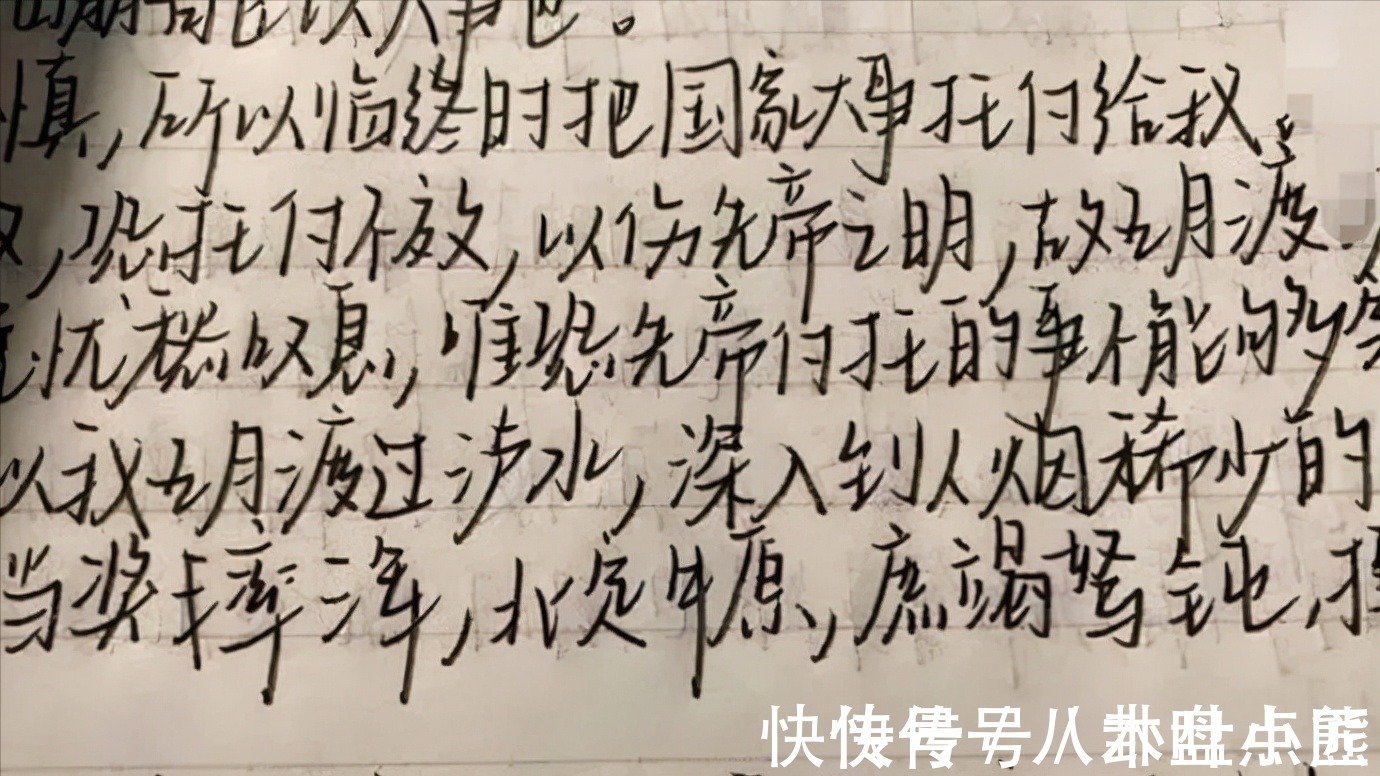 以大事也。
慎,所以临终时把国家大事托付给我
,恐托付不效,以伤先帝之明,故五月渡
忧愁叹息,唯恐先帝付托的事不能够
以我五月渡过泸水,深入到人烟稀少的
当奖率三军,北定中原,庶竭驽钝,
快传号